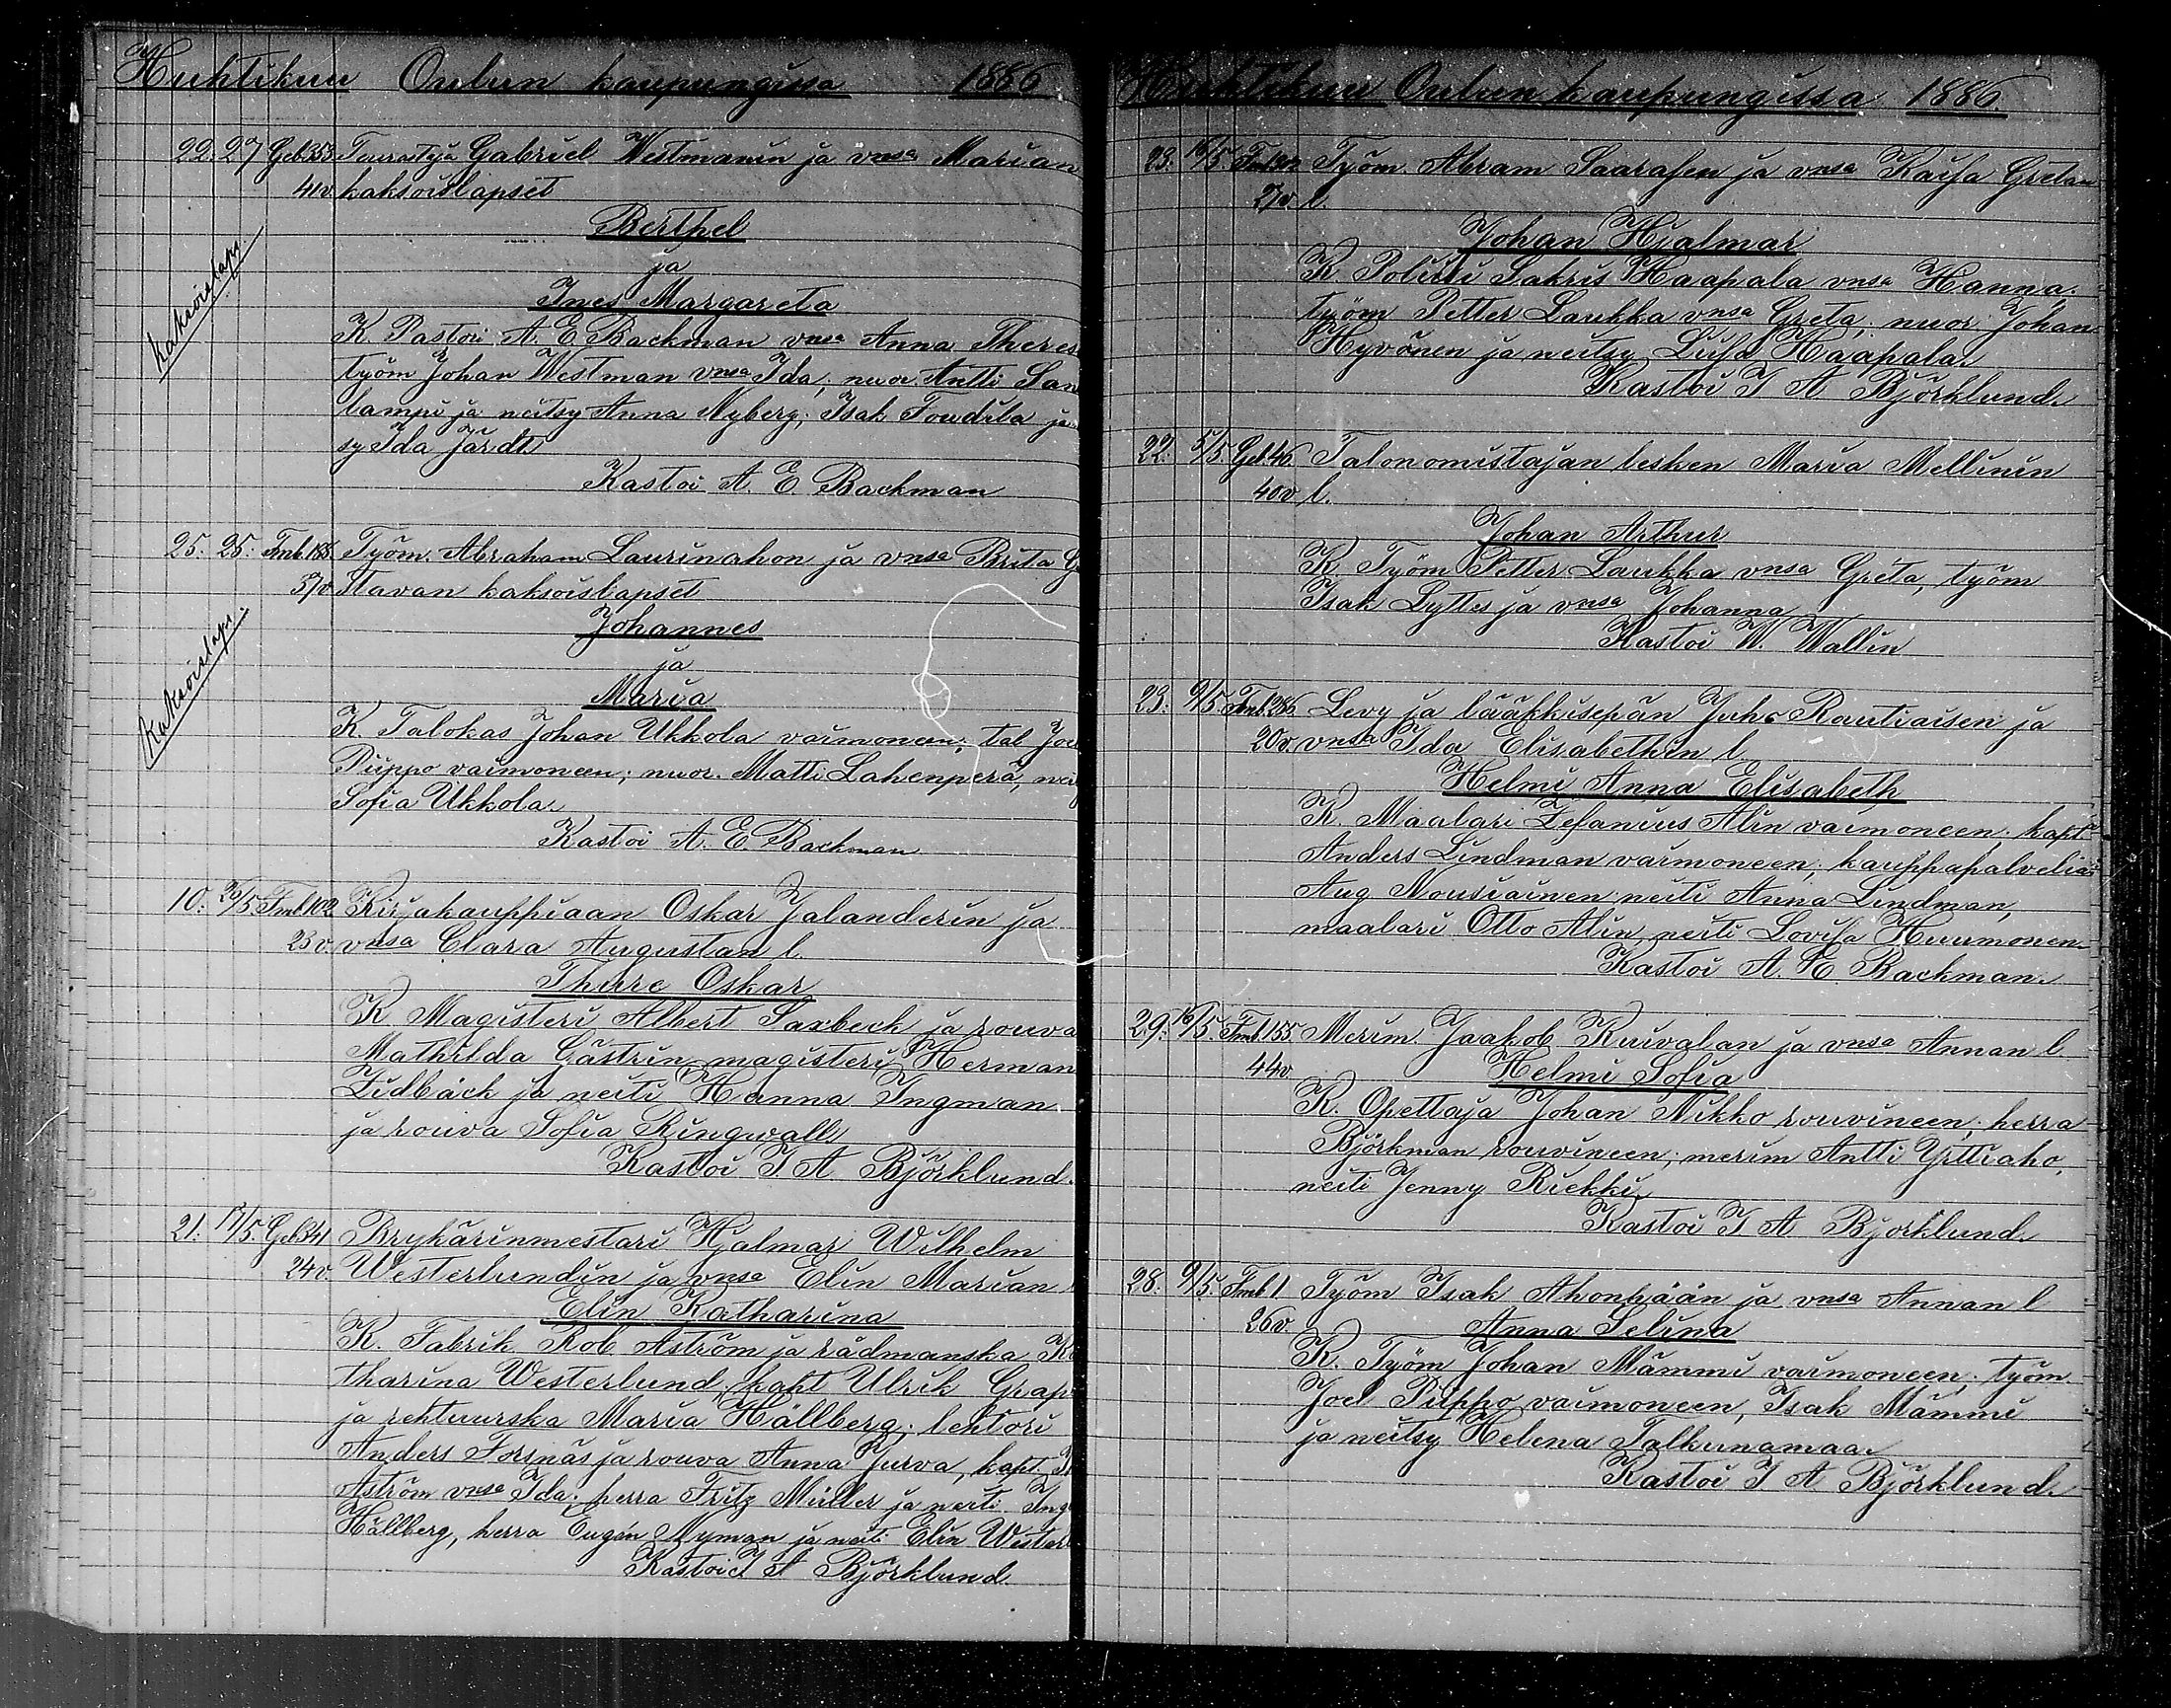 Huhtikuu Oulun kaupungissa 1886
22. 27 Geb. 353 Teurastaja Gabriel Westmanin ja vmsa Marian
41 v. kaksoislapset
Berthel
ja
Ines Margareta
Kaksoislaps.
K. Pastori A. E. Backman vmsa Anna Theres
työm Johan Westman vmsa Ida; nuor. Antti San
lampi ja neitsy Anna Nyberg; Isak Toudila ja
sy Ida Järdt.
Kastoi A. E. Backman
25. 25. Fmb. 185. Työm. Abraham Laurinahon ja vmsa Brita G
37 v. stavan kaksoislapset
Johannes
ja
Maria
Kaksoislaps.
K. Talokas Johan Ukkola vaimoneen; tal Joe
Piippo vaimoneen; nuor. Matti Lahenperä, nei
Sofia Ukkola.
Kastoi A. E. Backman
10. 20/5 Fmb 102 Kirjakauppiaan Oskar Jalanderin ja
23 v. vmsa Clara Augustan l.
Thure Oskar
K. Magisteri Albert Saxbeck ja rouva
Mathilda Gästrin, magisteri Herman
Lidbäck ja neiti Hanna Ingman
ja rouva Sofia Ringwall
Kastoi I A Björklund.
21. 17/5. Geb. 341 Prykärinmestari Hjalmar Wilhelm
24 v. Westerlundin ja vmsa Elin Marian
Elin Katharina
K. Fabrik Rob Aström ja rådmanska Ka
tharina Westerlund, kapt Ulrik Grap
ja rehtuurska Maria Hällberg; lehtori
Anders Forsnäs ja rouva Anna Jurva, kapt.
Aström vmsa Ida; herra Fritz Müller ja neiti Ing
Hällberg, herra Eugén Nyman ja neiti Elin Wester
Kastoi I A Björklund.
Huhtikuu Oulun kaupungissa 1886
23. 16/5 Työm. Abram Saarasen ja vmsa Kaisa Gretan
27 v. l.
Johan Hjalmar
K. Poliisi Sakris Haapala vmsa Hanna,
työm Petter Laukka vmsa Greta; nuor. Johan
Hyvönen ja neitsy Liisa Haapala.
Kastoi I A Björklund.
22. 5/5. Geb. 46. Talonomistajan lesken Maria Mellinin
40 v l.
Johan Arthur
K. Työm Petter Laukka vmsa Greta, työm
Isak Lyttes ja vmsa Johanna
Kastoi W. Wallin
23. 9/5. Fmb. 286. Levy ja lääkkisepän Juho Rautiaisen ja
20 v. vmsa Ida Elisabethin l.
Helmi Anna Elisabeth
K. Maalari Zefanius Alin vaimoneen; kapt.
Anders Lindman vaimoneen; kauppapalvelia
Aug Nousiainen neiti Anna Lindman,
maalari Otto Alin, neiti Lovisa Huumonen.
Kastoi A. E. Backman.
29. 16/5. Fmb. 155. Merim. Jaakob Kuivalan ja vmsa Annan l
44 v. Helmi Sofia
K. Opettaja Johan Nikko rouvineen; herra
Björkman rouvineen; merim Antti Yrttiaho,
neiti Jenny Riekki.
Kastoi I A Björklund.
28. 9/5. Fmb 1 Työm Isak Ahonpään ja vmsa Annan l
26 v. Anna Selina
K. Työm Johan Mämmi vaimoneen; työm.
Joel Piippo vaimoneen, Isak Mämmi
ja neitsy Helena Talkunamaa.
Kastoi I A Björklund.